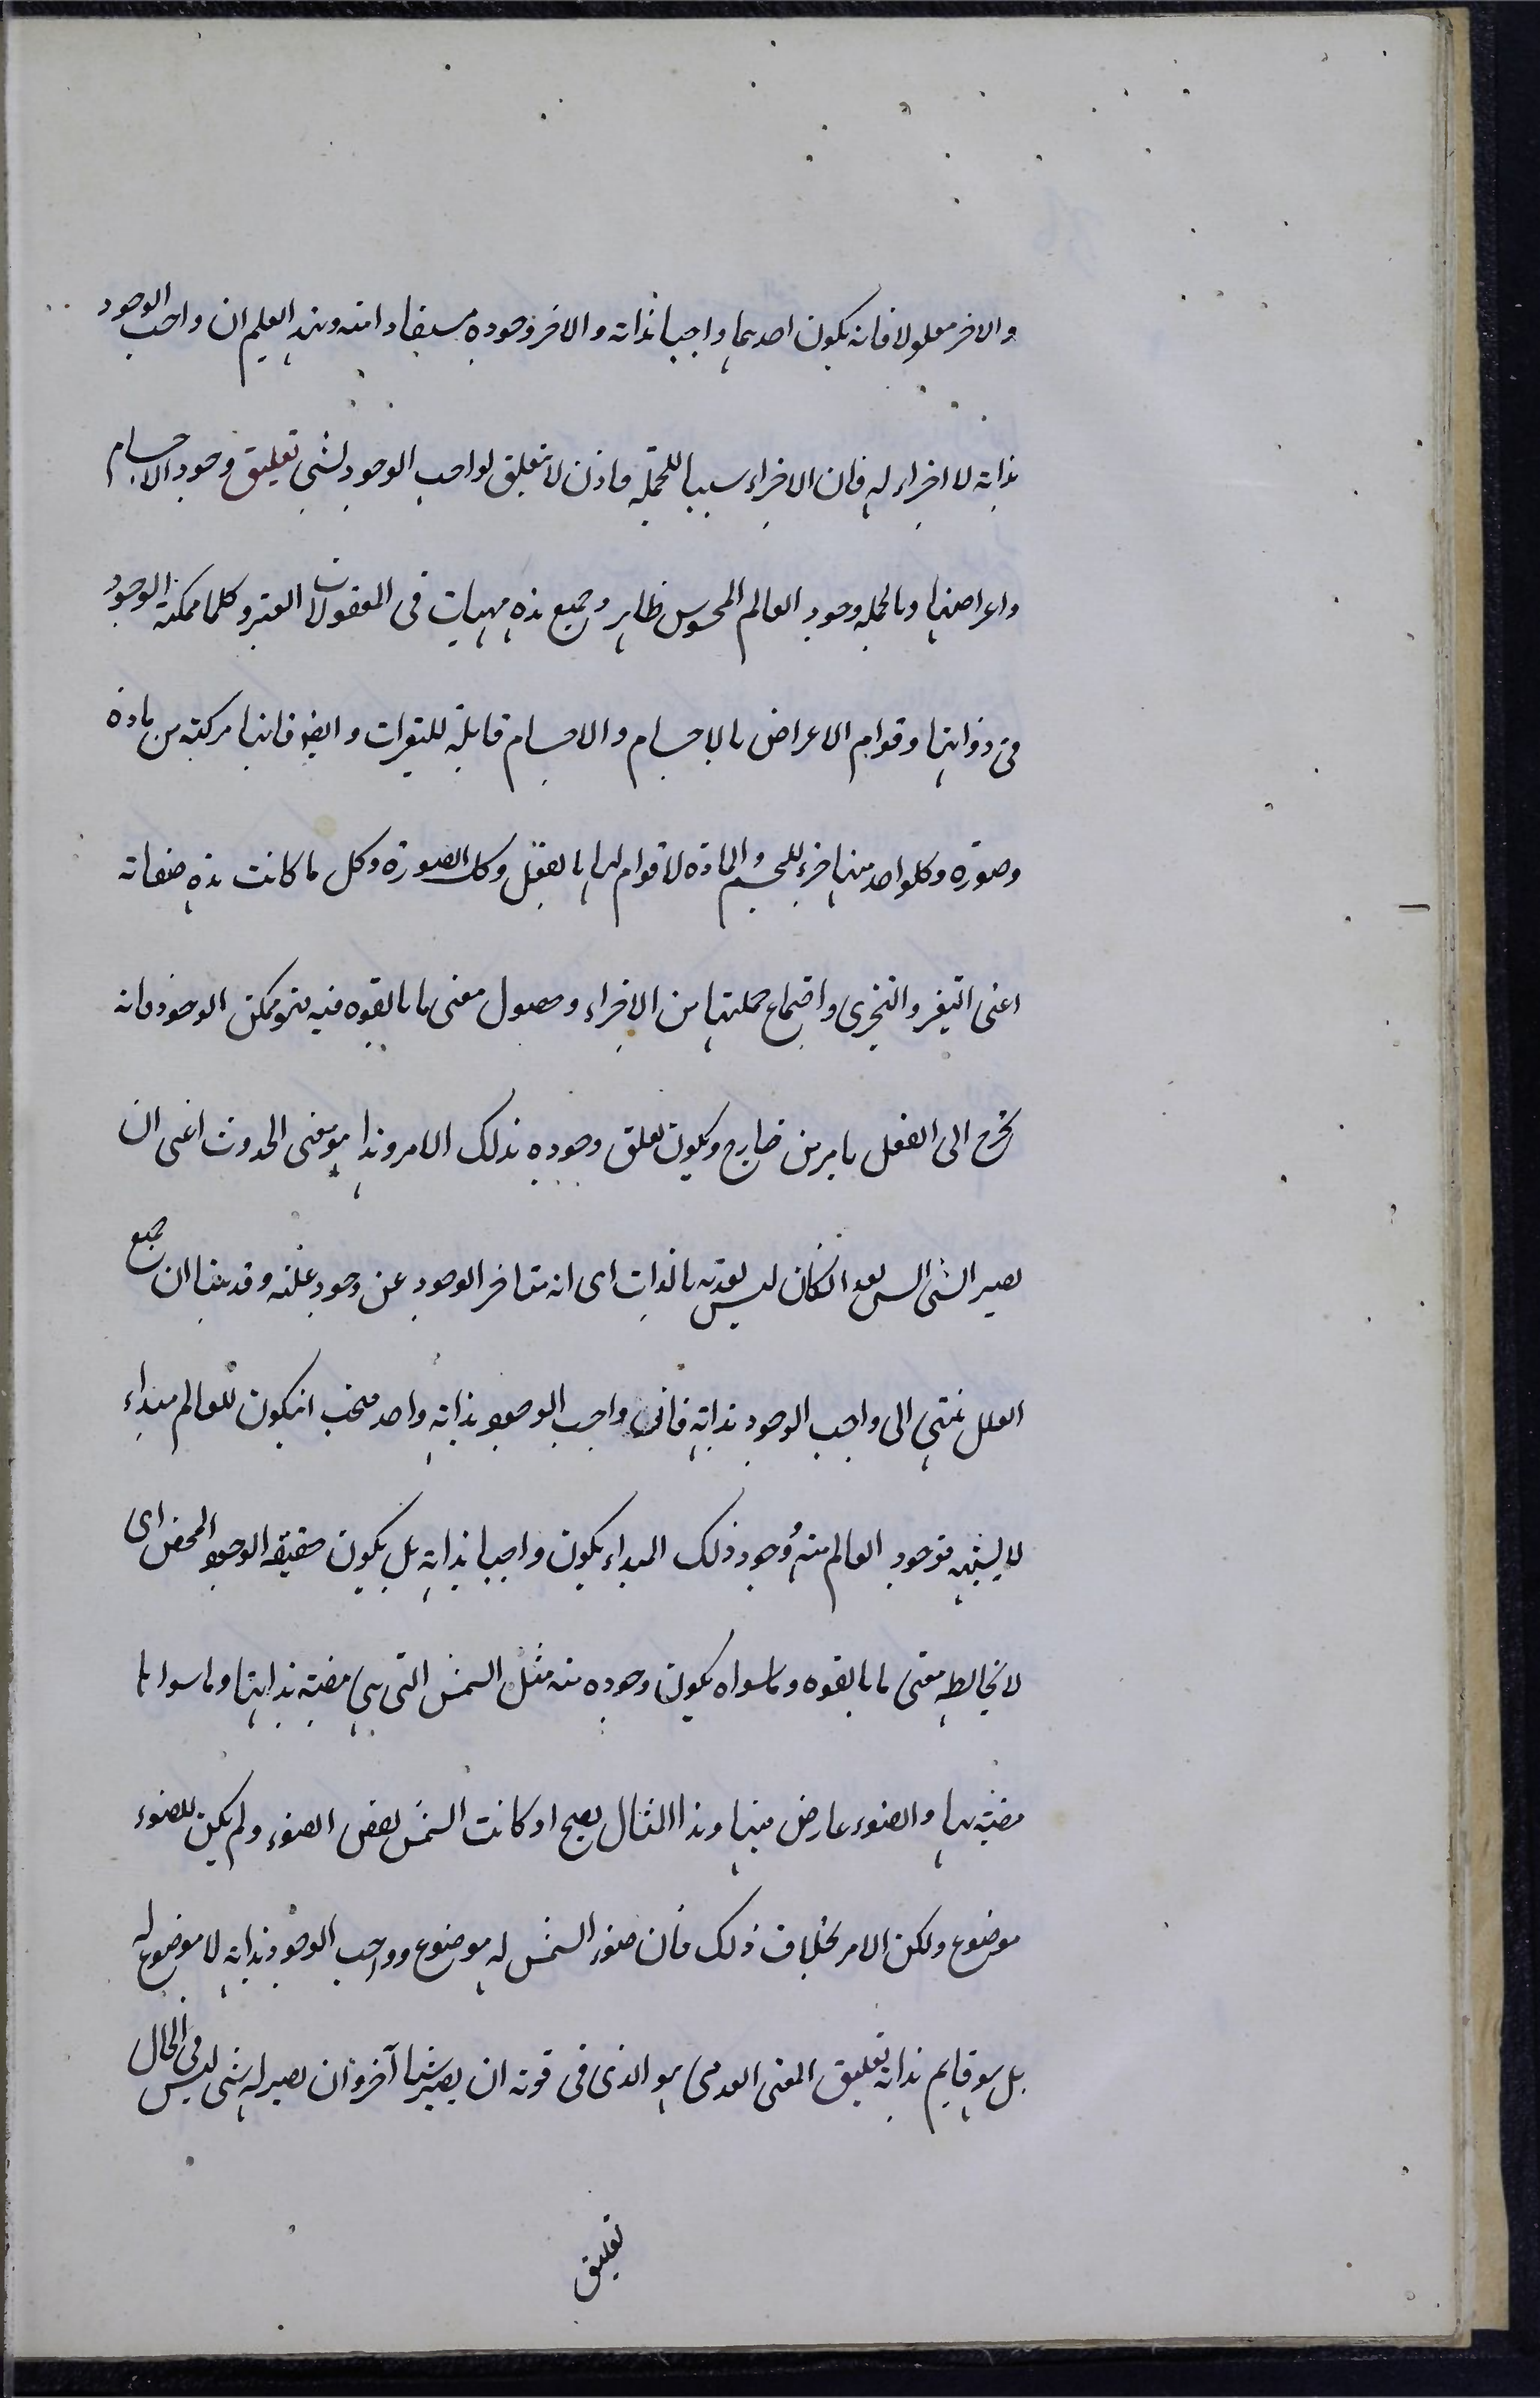 والاخر معلولا فانه يكون احدهما واجبا بذاته والاخر وجوده مستفادا منه وبهذا يعلم ان واجب الوجود
بذاته لا اجزاء له فان الاجزاء سببا للجملة فاذن لا تعلق لواجب الوجود بشئ تعليق وجود الاجسام
واعراضها وبالجمله وجود العالم المحسوس ظاهر وجميع هذه مهيات فى المعقولات العشر وكلها ممكنة الوجود
فى ذواتها وقوام الاعراض بالاجسام والاجسام قابلة للتغيرات وايضا فانها مركبة من مادة
وصورة وكلواحد منها جزء للجسم والمادة لا قوام لها بالفعل وكك الصورة وكل ما كانت هذه صفاته
اعنى التغير والتجزى واجتماع جملتها من الاجزاء وحصول معنى ما بالقوه فيه فهو ممكن الوجود وانه
يخرج الى الفعل بامر من خارج ويكون تعلق وجوده بذلك الامر وهذا هو معنى الحدوث اعنى ان
يصير الشئ ايس بعد انكان ليس بعديه بالذات اى انه متاخر الوجود عن وجود علته وقد بينا ان جميع
العلل تنتهى الى واجب الوجود بذاته فان واجب الوجود بذاته واحد فيجب انيكون للعالم مبداء
لا يشبهه فوجود العالم منه ووجود ذلك المبداء يكون واجبا بذاته بل يكون حقيقه الوجود المحض اى
لا يخالطه معنى ما بالقوه وما سواه يكون وجوده منه مثل الشمس التى هى مضيئة بذاتها وما سواها
مضيئة بها والضوء عارض فيها وهذا المثال يصح او كانت الشمس بعض الضوء ولم يكن للضوء
موضوع ولكن الامر بخلاف ذلك فان ضوء الشمس له موضوع وواجب الوجود بذاته لا موضوع له
بل هو قايم بذاته تعليق المعنى العدمى هو الذى فى قوته ان يصير شيئا آخر وان يصير له شئ ليس فى الحال
تعليق